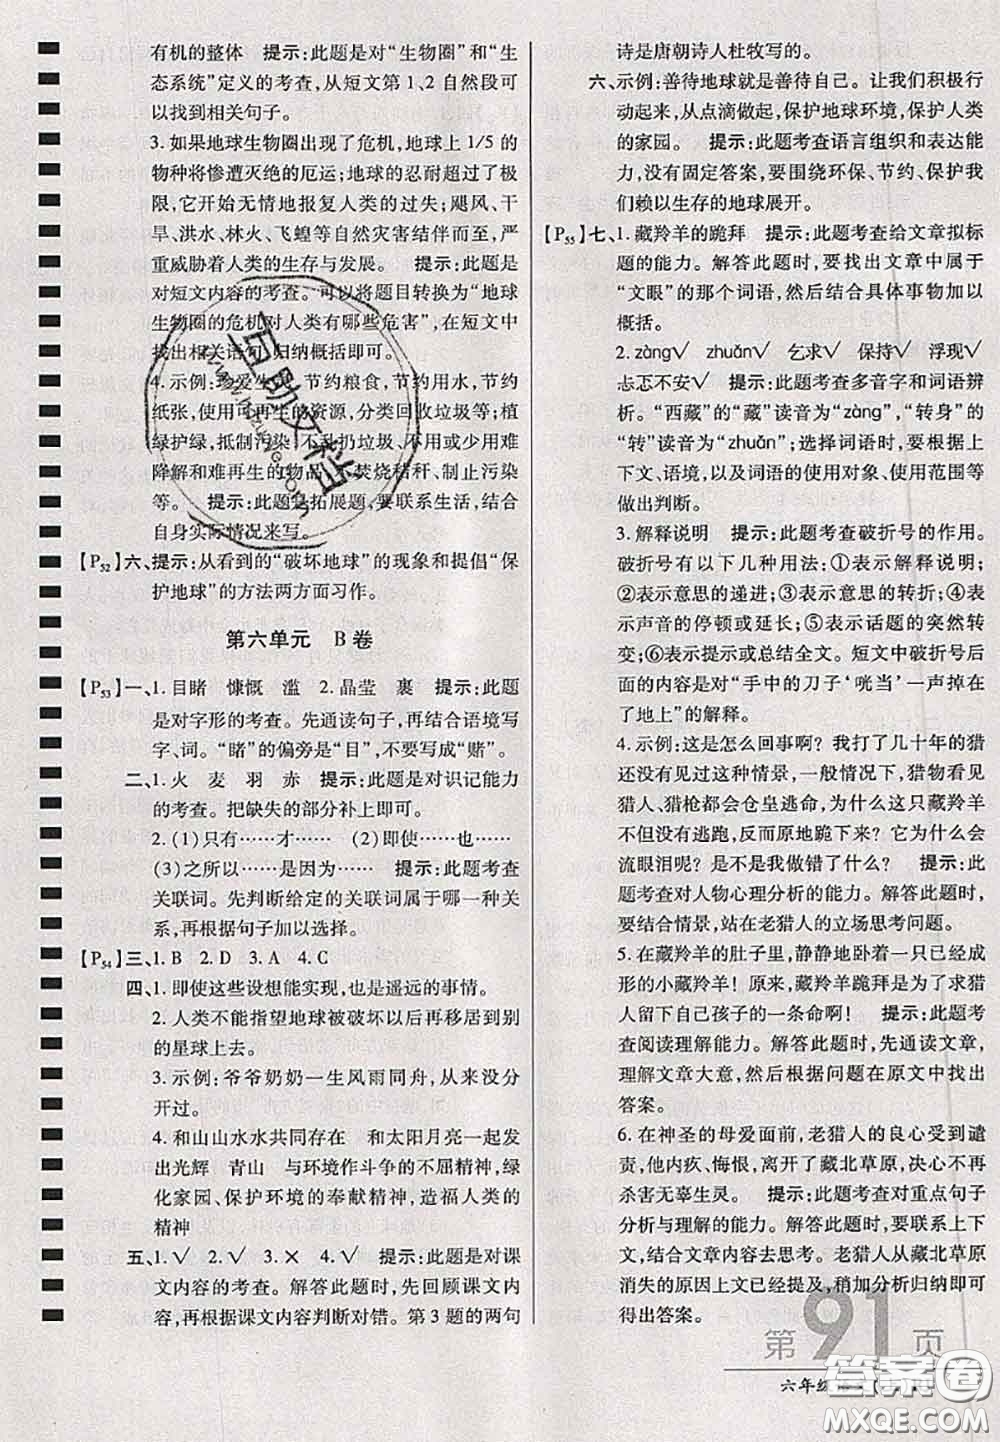 有机的整体　提示:此题是对“生物圈”和“生
态系统”定义的考查,从短文第1、2自然段可
以找到相关句子。
3.如果地球生物圈出现了危机,地球上1/5的
物种将惨遭灭绝的厄运;地球的忍耐超过了极
限,它开始无情地报复人类的过失;飓风、干
旱、洪水、林火、飞蝗等自然灾害结伴而行,严
重威胁着人类的生存与发展。　提示:此题是
对短文内容的考查。可以将题目转换为“地球
生物圈的危机对人类有哪些危害”,在短文中
找出相关语句,归纳概括即可。
4.示例:珍爱生命,节约粮食,节约用水,节约
纸张,使用可再生的资源,分类回收垃圾等;植
绿护绿,抵制污染,不乱扔垃圾、不用或少用难
降解和难再生的物品,不焚烧秸秆、制止污染
等。　提示:此题是拓展题,要联系生活,结合
自身实际情况来写。
【P52】六、提示:从看到的“破坏地球”的现象和提倡“保
护地球”的方法两方面习作。
第六单元　B卷
【P53】一、1.目睹　慷慨　滥　2.晶莹　裹　提示:此题
是对字形的考查。先通读句子,再结合语境写
字、词。“睹”的偏旁是“目”,不要写成“赌”。
二、1.火　麦　羽　赤　提示:此题是对识记能力
的考查。把缺失的部分补上即可。
2.(1)只有……才……　(2)即使……也……
(3)之所以……是因为……　提示:此题考查
关联词。先判断给定的关联词属于哪一种关
系,再根据句子加以选择。
【P54】三、1.B　2.D　3.A　4.C
四、1.即使这些设想能实现,也是遥远的事情。
2.人类不能指望地球被破坏以后再移居到别
的星球上去。
3.示例:爷爷奶奶一生风雨同舟,从来没分
开过。
4.和山山水水共同存在　和太阳月亮一起发
出光辉　青山　与环境作斗争的不屈精神,绿
化家园、保护环境的奉献精神,造福人类的
精神
五、1.√　2.√　3.×　4.√　提示:此题是对课
文内容的考查。解答此题时,先回顾课文内
容,再根据课文内容判断对错。第3题的两句
诗是唐朝诗人杜牧写的。
六、示例:善待地球就是善待自己。让我们积极行
动起来,从点滴做起,保护地球环境,保护人类
的家园。　提示:此题考查语言组织和表达能
力,没有固定答案,要围绕环保、节约、保护我
们赖以生存的地球展开。
【P55】七、1.藏羚羊的跪拜　提示:此题考查给文章拟标
题的能力。解答此题时,要找出文章中属于
“文眼”的那个词语,然后结合具体事物加以
概括。
2.zàng√　zhuǎn√　乞求√　保持√　浮现√
忐忑不安√　提示:此题考查多音字和词语辨
析。“西藏”的“藏”读音为“zàng”,“转身”的
“转”读音为“zhuǎn”;选择词语时,要根据上
下文、语境,以及词语的使用对象、使用范围等
做出判断。
3.解释说明　提示:此题考查破折号的作用。
破折号有以下几种用法:①表示解释说明;
②表示意思的递进;③表示意思的转折;④表
示声音的停顿或延长;⑤表示话题的突然转
变;⑥表示提示或总结全文。短文中破折号后
面的内容是对“手中的刀子‘咣当’一声掉在
了地上”的解释。
4.示例:这是怎么回事啊?我打了几十年的猎
还没有见过这种情景,一般情况下,猎物看见
猎人、猎枪都会仓皇逃命,为什么这只藏羚羊
不但没有逃跑,反而原地跪下来?它为什么会
流眼泪呢?是不是我做错了什么?　提示:此
题考查对人物心理分析的能力。解答此题时,
要结合情景,站在老猎人的立场思考问题。
5.在藏羚羊的肚子里,静静地卧着一只已经成
形的小藏羚羊!原来,藏羚羊跪拜是为了求猎
人留下自己孩子的一条命啊!　提示:此题考
查阅读理解能力。解答此题时,先通读文章,
理解文章大意,然后根据问题在原文中找出
答案。
6.在神圣的母爱面前,老猎人的良心受到谴
责,他内疚、悔恨,离开了藏北草原,决心不再
杀害无辜生灵。　提示:此题考查对重点句子
分析与理解的能力。解答此题时,要联系上下
文,结合文章内容去思考。老猎人从藏北草原
消失的原因上文已经提及,稍加分析归纳即可
得出答案。
第91页
六年级
答案圈
MXQE.COM